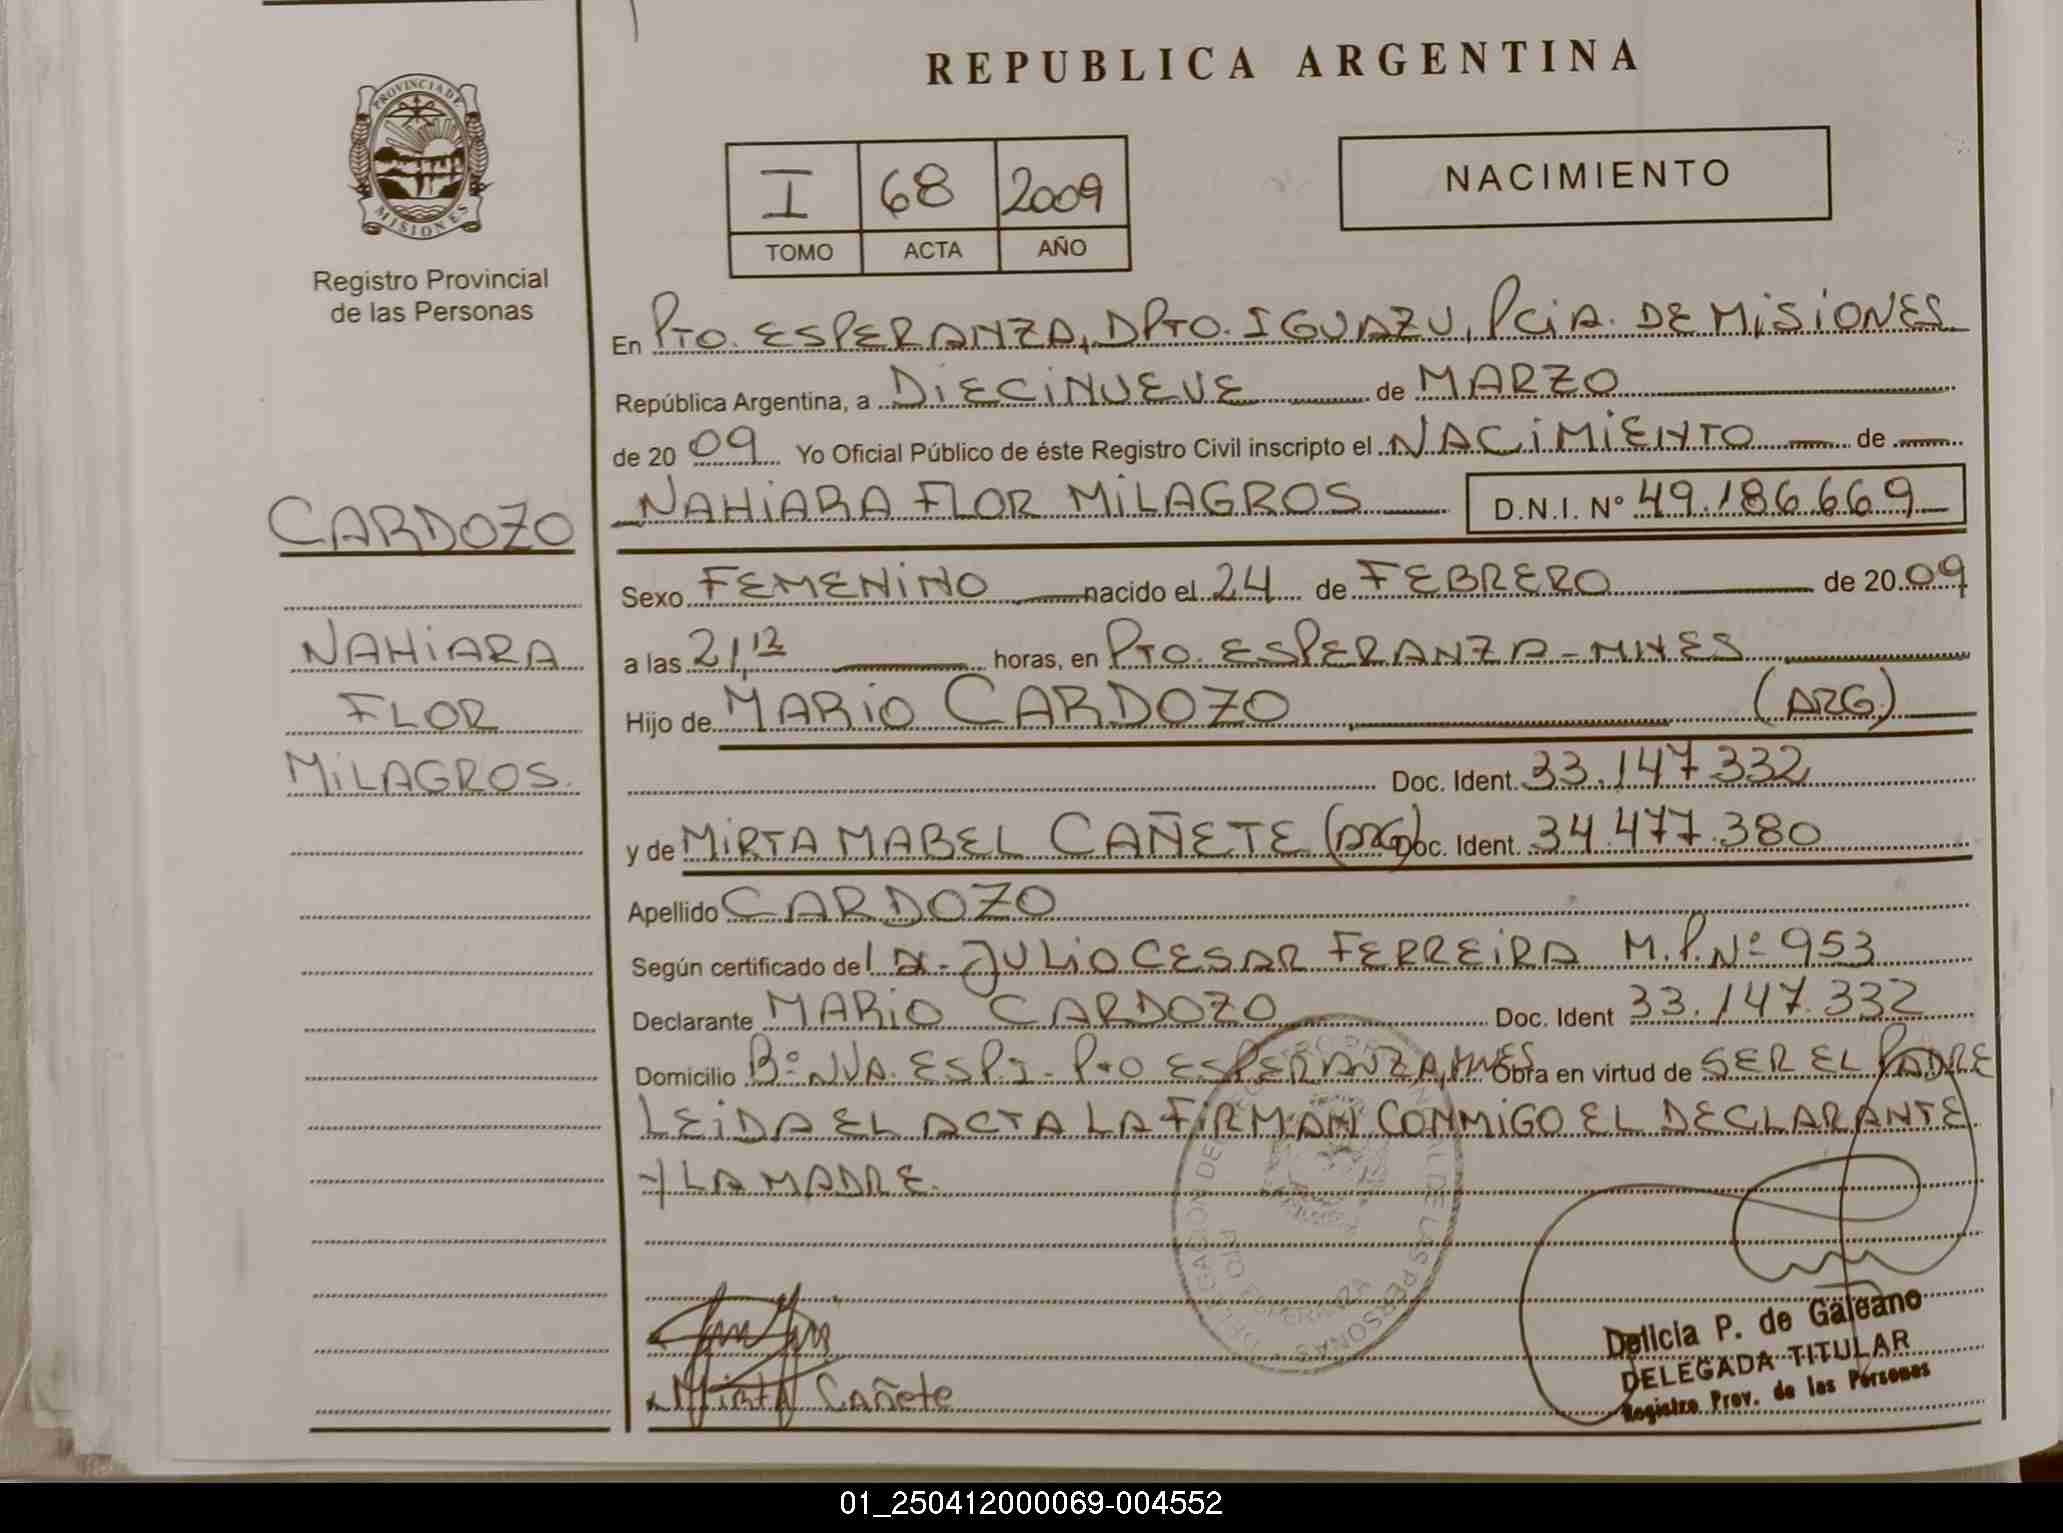 REPUBLICA ARGENTINA
PROVINCIA DE
MISIONES
Registro Provincial
de las Personas
I 68 2009
TOMO ACTA AÑO
NACIMIENTO
En Pto. ESPERANZA, DPTO. IGUAZU, PCiA. DE MiSiONES
República Argentina, a DiECiNUEVE de MARZO
de 2009 Yo Oficial Público de éste Registro Civil inscripto el NACiMiENTO de
CARDOZO
NAHiARA FLOR MiLAGROS D.N.I. Nº 49.186.669
Sexo FEMENiNO nacido el 24 de FEBRERO de 2009
NAHiARA
a las 21,12 horas, en PTO. ESPERANZA-MNES
FLOR
Hijo de MARiO CARDOZO (ARG)
MiLAGROS.
Doc. Ident. 33.147.332
y de MiRTA MABEL CAÑETE (ARG) Doc. Ident. 34.477.380
Apellido CARDOZO
Según certificado del DR. JULiO CESAR FERREiRA M.P.Nº 953
Declarante MARiO CARDOZO Doc. Ident 33.147.332
Domicilio Bº NVA. ESP. PTO ESPERANZA, MNES Obra en virtud de SER EL PADRE
LEiDA EL ACTA LA FiRMAN CONMiGO EL DECLARANTE
Y LA MADRE.
Mirta Cañete
Delicia P. de Galeano
DELEGADA TITULAR
Registro Prov. de las Personas
01_250412000069-004552